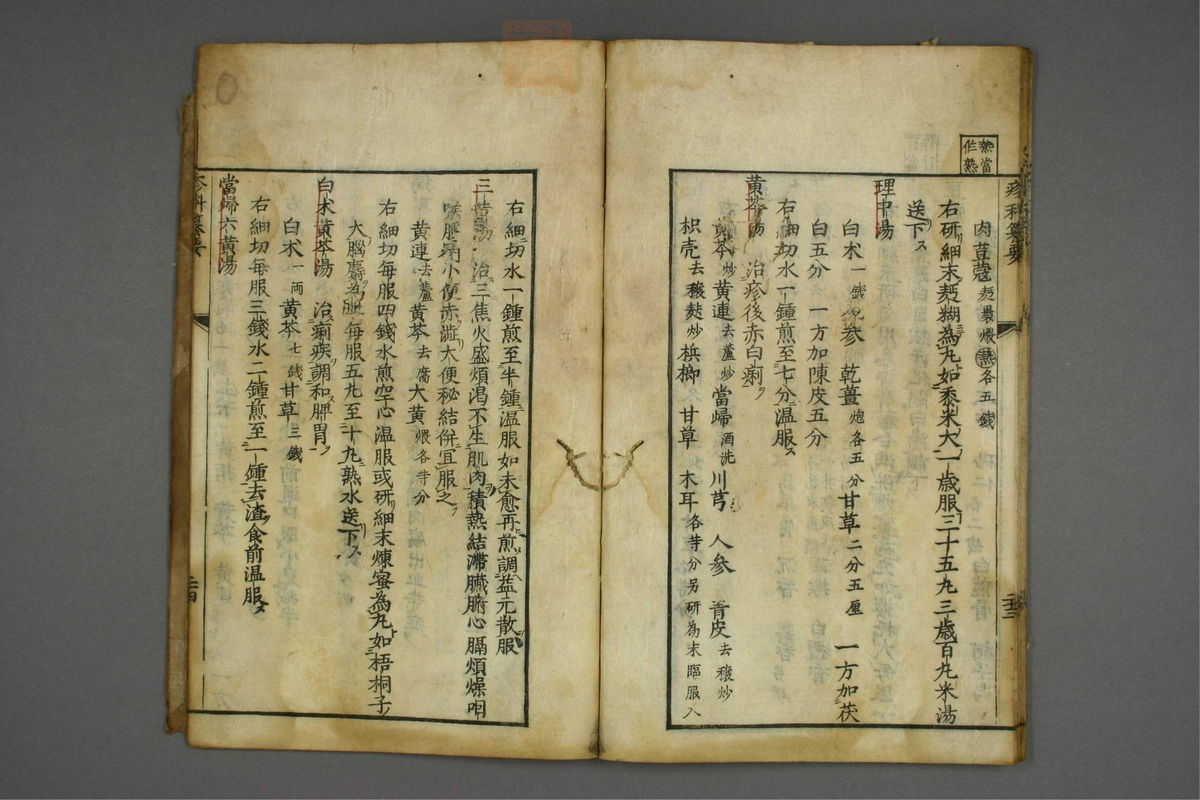 熟當
作熟
疹科纂要
肉荳蔲 麪裹煨熟各五錢
右研細末麪糊為丸如黍米大一歲服三十五丸三歲百丸米湯
送下ス
理中湯
白朮一錢 人參 乾薑炮各五分 甘草二分五厘 一方加茯
白五分 一方加陳皮五分
右細切水一鍾煎至七分溫服ス
黄芩湯 治疹後赤白痢ヲ
黄芩炒 黄連去蘆炒 當歸酒洗 川芎 人參 青皮去穰炒
枳壳去穰麸炒 檳榔 甘草 木耳各等分另研為末臨服入
二十三
右細切水一鍾煎至半鍾溫服如未愈再煎調益元散服
三黄湯 治三焦火盛煩渇不生肌肉積熱結滯臟腑心膈煩燥咽
喉腫痛小便赤澁大便秘結併宜服之ヲ
黄連去蘆 黄芩去腐 大黄煨各等分
右細切每服四錢水煎空心溫服或研細末煉蜜為丸如梧桐子
大每服五丸至十丸熟水送下ス
白朮黄芩湯 治痢疾調和脾胃ヲ
白朮一両 黄芩七錢 甘草三錢
右細切每服三錢水二鍾煎至一鍾去渣食前溫服ス
當歸六黄湯
疹科纂要
二十四